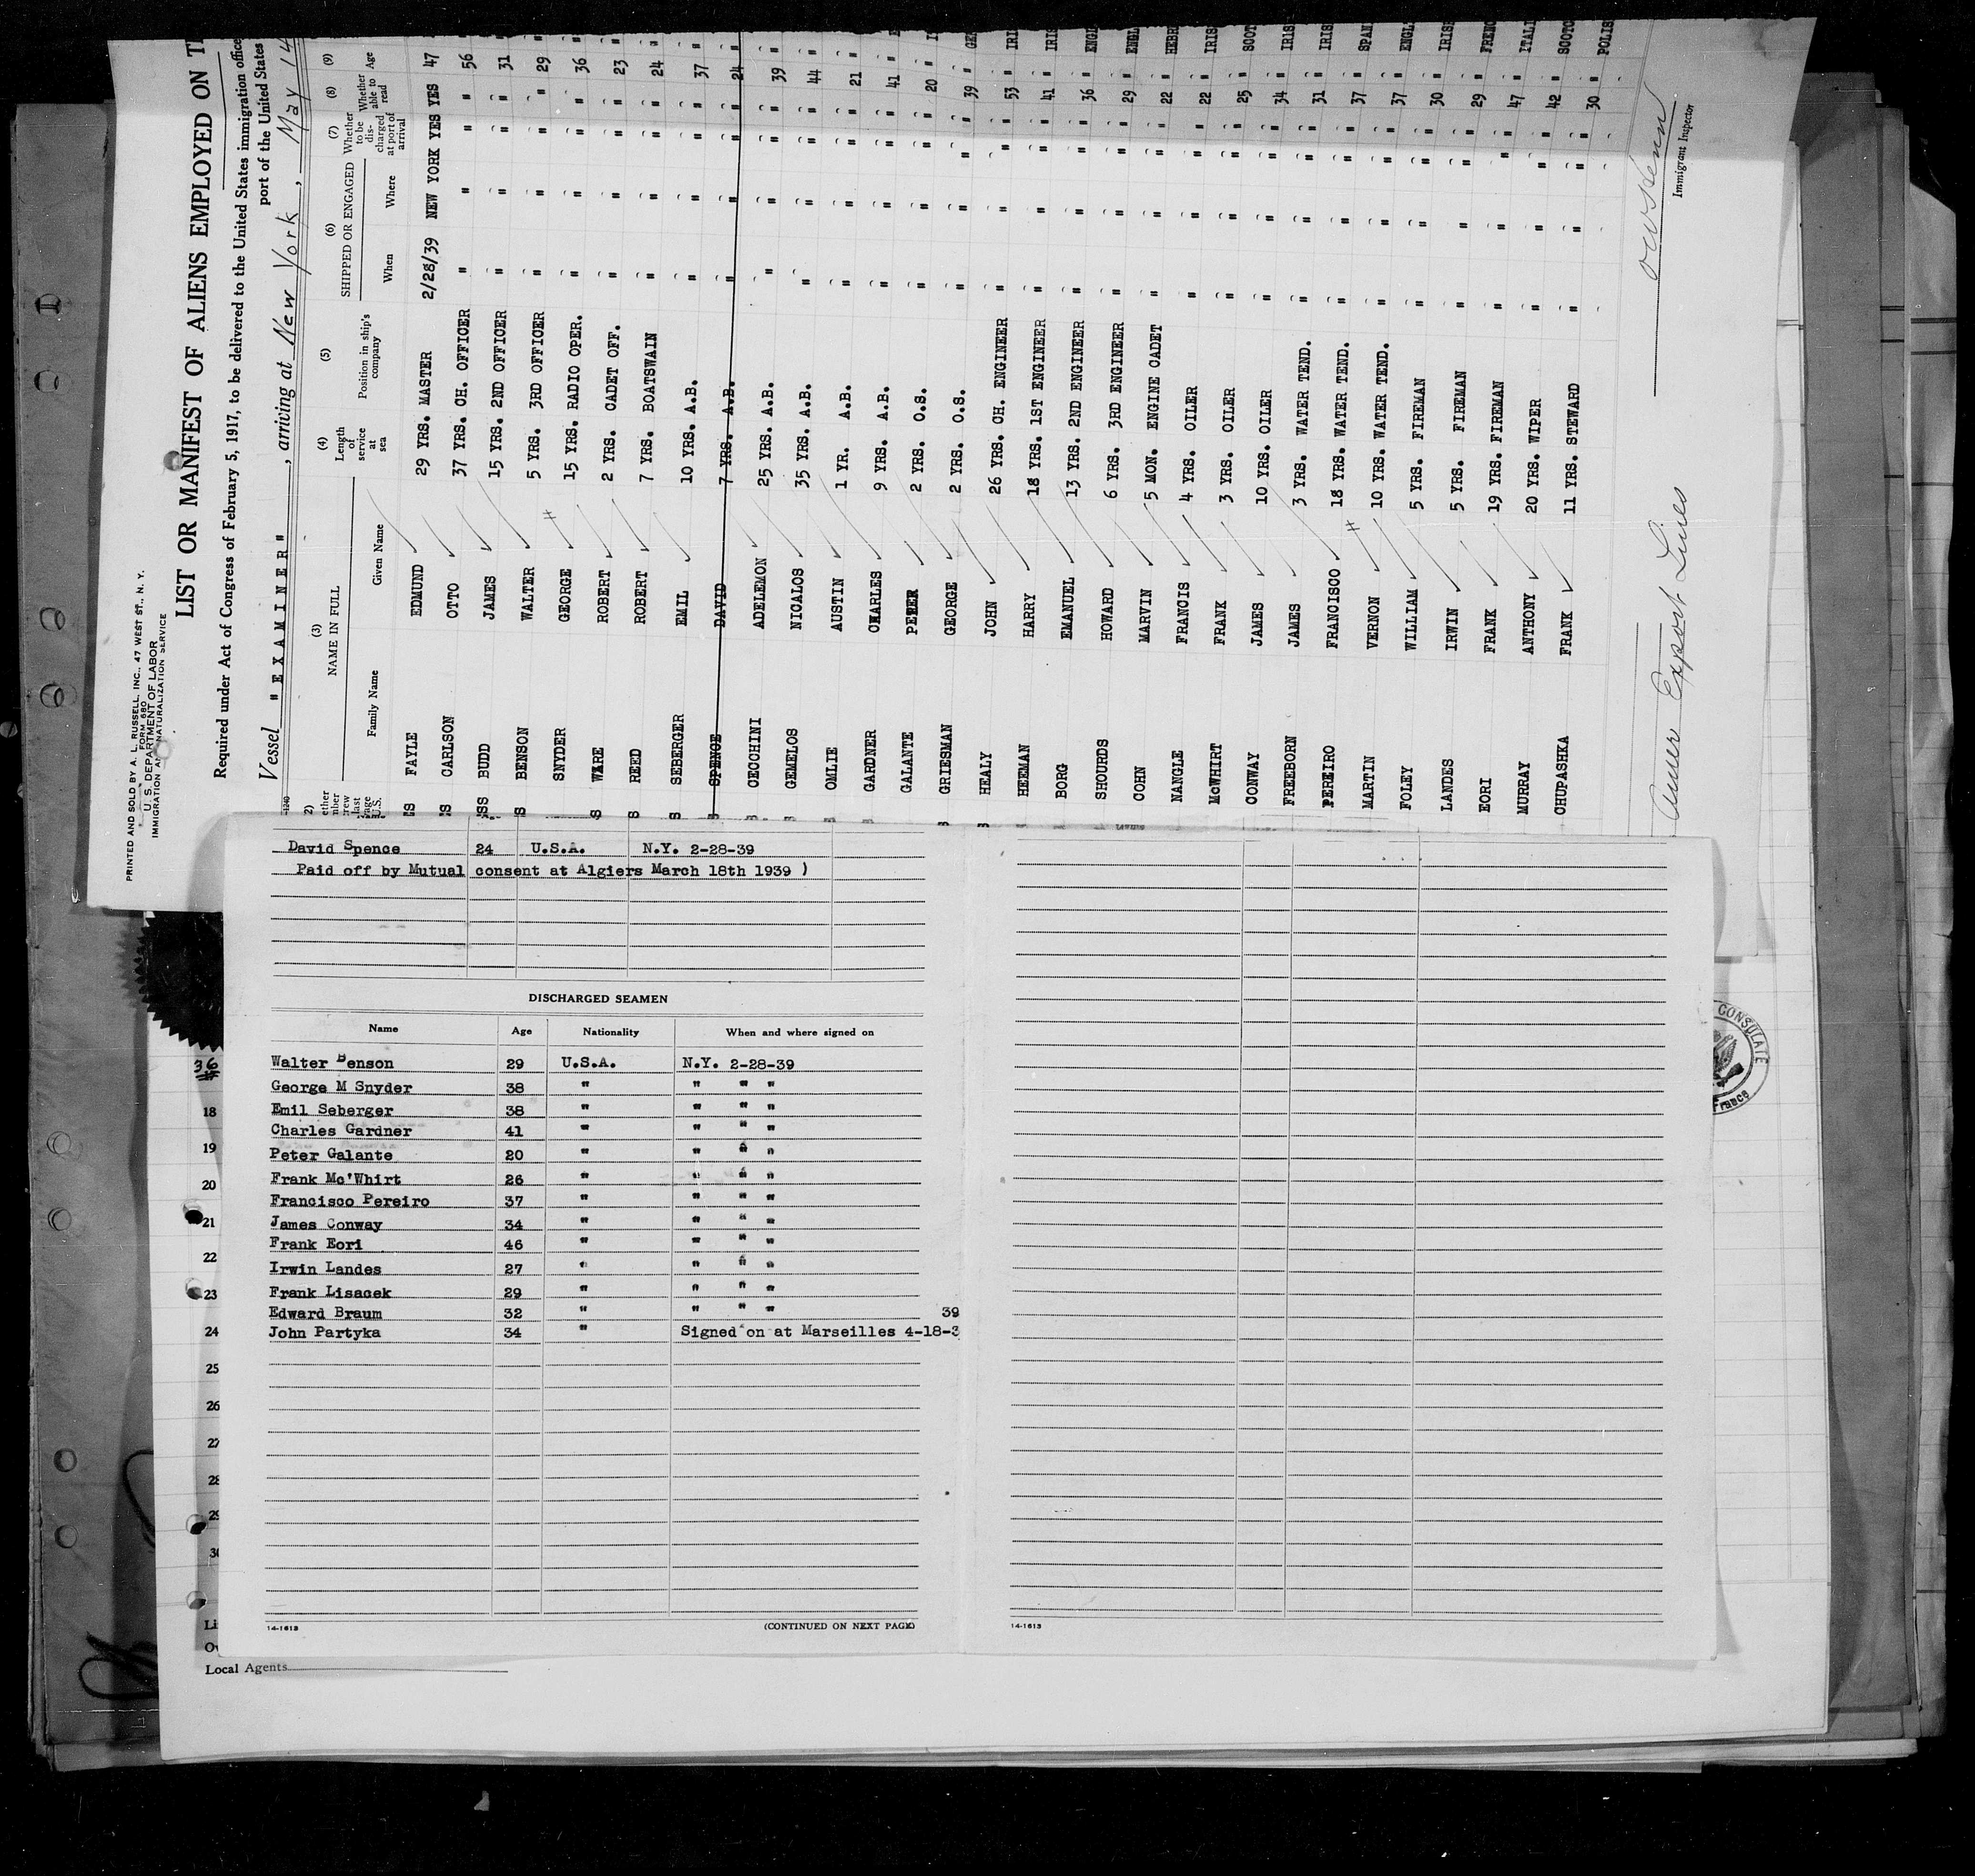 PRINTED AND SOLD BY A. L. RUSSELL, INC., 47 WEST ST., N. Y.
FORM 680
U. S. DEPARTMENT OF LABOR
IMMIGRATION AND NATURALIZATION SERVICE
LIST OR MANIFEST OF ALIENS EMPLOYED ON T
Required under Act of Congress of February 5, 1917, to be delivered to the United States immigration office
port of the United States
Vessel "EXAMINER", arriving at New York, May 14
(3) (4) (5) (6) (7) (8) (9)
NAME IN FULL Length of service at sea Position in ship's company SHIPPED OR ENGAGED Whether to be discharged at port of arrival Whether able to read Age
Family Name Given Name When Where
FAYLE EDMUND 29 YRS. MASTER 2/28/39 NEW YORK YES YES 47
CARLSON OTTO 37 YRS. CH. OFFICER " " " " 56
BUDD JAMES 15 YRS. 2ND OFFICER " " " " 31
BENSON WALTER 5 YRS. 3RD OFFICER " " " " 29
SNYDER GEORGE 15 YRS. RADIO OPER. " " " " 36
WARE ROBERT 2 YRS. CADET OFF. " " " " 23
REED ROBERT 7 YRS. BOATSWAIN " " " " 24
SEBERGER EMIL 10 YRS. A.B. " " " " 37
SPENCE DAVID 7 YRS. A.B. " " " " 24
CECCHINI ADELEMON 25 YRS. A.B. " " " " 39
GEMELOS NICALOS 35 YRS. A.B. " " " " 44
OMLIE AUSTIN 1 YR. A.B. " " " " 21
GARDNER CHARLES 9 YRS. A.B. " " " " 41
GALANTE PETER 2 YRS. O.S. " " " " 20
GRIESMAN GEORGE 2 YRS. O.S. " " " " 39 GER
HEALY JOHN 26 YRS. CH. ENGINEER " " " " 53 IRI
HEEMAN HARRY 18 YRS. 1ST ENGINEER " " " " 41 IRIS
BORG EMANUEL 13 YRS. 2ND ENGINEER " " " " 36 ENGL
SHOURDS HOWARD 6 YRS. 3RD ENGINEER " " " " 29 ENGL
COHN MARVIN 5 MON. ENGINE CADET " " " " 22 HEBR
NANGLE FRANCIS 4 YRS. OILER " " " " 22 IRIS
McWHIRT FRANK 3 YRS. OILER " " " " 25 SCOT
CONWAY JAMES 10 YRS. OILER " " " " 34 IRIS
FREEBORN JAMES 3 YRS. WATER TEND. " " " " 31 IRIS
PEREIRO FRANCISCO 18 YRS. WATER TEND. " " " " 37 SPAN
MARTIN VERNON 10 YRS. WATER TEND. " " " " 37 ENGL
FOLEY WILLIAM 5 YRS. FIREMAN " " " " 30 IRIS
LANDES IRWIN 5 YRS. FIREMAN " " " " 29 FREN
EORI FRANK 19 YRS. FIREMAN " " " " 47 ITALI
MURRAY ANTHONY 20 YRS. WIPER " " " " 42 SCOTC
CHUPASHKA FRANK 11 YRS. STEWARD " " " " 30 POLIS
Amer Export Lines
Immigrant Inspector
David Spence 24 U.S.A. N.Y. 2-28-39
Paid off by Mutual consent at Algiers March 18th 1939 )
DISCHARGED SEAMEN
Name Age Nationality When and where signed on
Walter Benson 29 U.S.A. N.Y. 2-28-39
George M Snyder 38 " " " "
Emil Seberger 38 " " " "
Charles Gardner 41 " " " "
Peter Galante 20 " " " "
Frank Mc'Whirt 26 " " " "
Francisco Pereiro 37 " " " "
James Conway 34 " " " "
Frank Eori 46 " " " "
Irwin Landes 27 " " " "
Frank Lisacek 29 " " " "
Edward Braum 32 " " " "
39
John Partyka 34 " Signed on at Marseilles 4-18-3
14-1613 (CONTINUED ON NEXT PAGE)
14-1613
36
18
19
20
21
22
23
24
25
26
27
28
29
30
Local Agents
CONSULATE
France